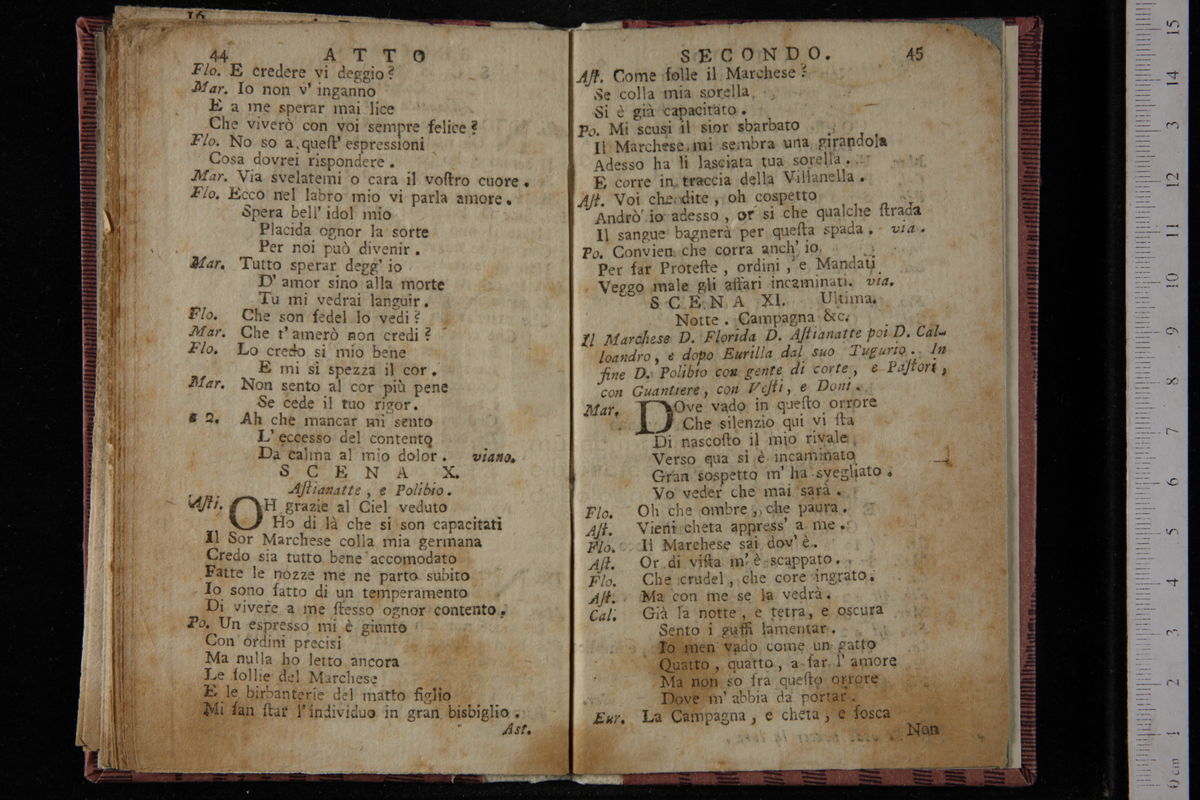 44 ATTO
Flo. E credere vi deggio?
Mar. Io non v' inganno
E a me sperar mai lice
Che viverò con voi sempre felice?
Flo. No so a queſt' espressioni
Cosa dovrei rispondere.
Mar. Via svelatemi o cara il voſtro cuore.
Flo. Ecco nel labro mio vi parla amore.
Spera bell' idol mio
Placida ognor la sorte
Per noi può divenir.
Mar. Tutto sperar degg' io
D' amor sino alla morte
Tu mi vedrai languir.
Flo. Che son fedel lo vedi?
Mar. Che t'amerò non credi?
Flo. Lo credo si mio bene
E mi si spezza il cor.
Mar. Non sento al cor più pene
Se cede il tuo rigor.
a 2. Ah che mancar mi sento
L' eccesso del contento
Da calma al mio dolor. viano.
SCENA X.
Aſtianatte, e Polibio.
Aſti. OH grazie al Ciel veduto
Ho di là che si son capacitati
Il Sor Marchese colla mia germana
Credo sia tutto bene accomodato
Fatte le nozze me ne parto subito
Io sono fatto di un temperamento
Di vivere a me ſtesso ognor contento.
Po. Un espresso mi è giunto
Con ordini precisi
Ma nulla ho letto ancora
Le follie del Marchese
E le birbanterie del matto figlio
Mi fan ſtar l'individuo in gran bisbiglio.
Ast.
SECONDO. 45
Aſt. Come folle il Marchese?
Se colla mia sorella
Si è già capacitato.
Po. Mi scusi il sior sbarbato
Il Marchese mi sembra una girandola
Adesso ha li lasciata tua sorella.
E corre in traccia della Villanella.
Aſt. Voi che dite, oh cospetto
Andrò io adesso, or si che qualche ſtrada
Il sangue bagnerà per queſta spada. via.
Po. Convien che corra anch' io
Per far Proteſte, ordini, e Mandati
Veggo male gli affari incaminati. via.
SCENA XI. Ultima.
Notte. Campagna &c.
Il Marchese D. Florida D. Aſtianatte poi D. Cal-
loandro, e dopo Eurilla dal suo Tugurio. In
fine D. Polibio con gente di corte, e Paſtori,
con Guantiere, con Veſti, e Doni.
Mar. DOve vado in queſto orrore
Che silenzio qui vi ſta
Di nascoſto il mio rivale
Verso qua si è incaminato
Gran sospetto m' ha svegliato.
Vo veder che mai sarà.
Flo. Oh che ombre, che paura.
Aſt. Vieni cheta appress' a me.
Flo. Il Marchese sai dov' è.
Aſt. Or di viſta m' è scappato.
Flo. Che crudel, che core ingrato.
Aſt. Ma con me se la vedrà.
Cal. Già la notte, e tetra, e oscura
Sento i guffi lamentar.
Io men vado come un gatto
Quatto, quatto, a far l' amore
Ma non so fra queſto orrore
Dove m' abbia da portar.
Eur. La Campagna, e cheta, e fosca
Non